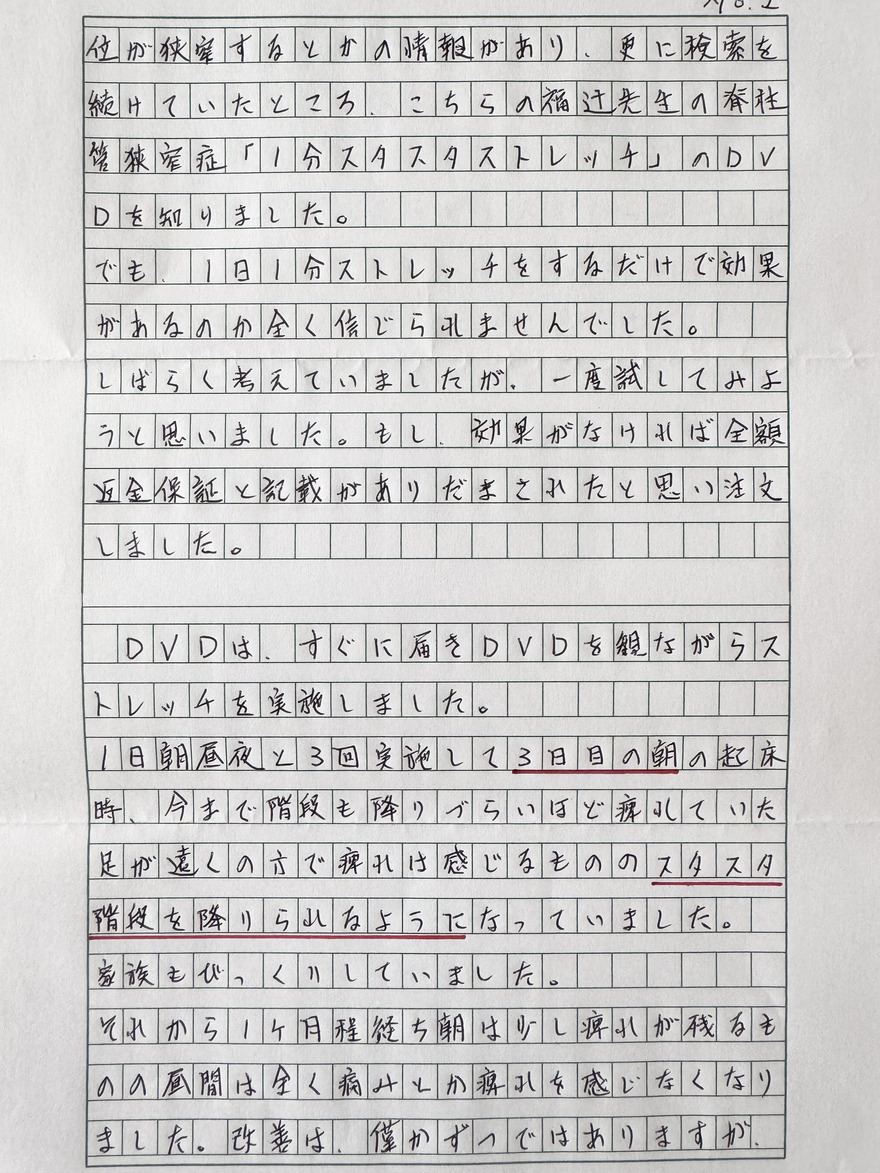 No.2
位が狭窄するとかの情報があり、更に検索を
続けていたところ、こちらの福辻先生の脊柱
管狭窄症「1分スタスタストレッチ」のDV
Dを知りました。
でも、1日1分ストレッチをするだけで効果
があるのか全く信じられませんでした。
しばらく考えていましたが、一度試してみよ
うと思いました。もし、効果がなければ全額
返金保証と記載がありだまされたと思い注文
しました。
DVDは、すぐに届きDVDを観ながらス
トレッチを実施しました。
1日朝昼夜と3回実施して3日目の朝の起床
時、今まで階段も降りづらいほど痺れていた
足が遠くの方で痺れは感じるもののスタスタ
階段を降りられるようになっていました。
家族もびっくりしていました。
それから1ケ月程経ち朝は少し痺れが残るも
のの昼間は全く痛みとか痺れを感じなくなり
ました。改善は、僅かずつではありますが、